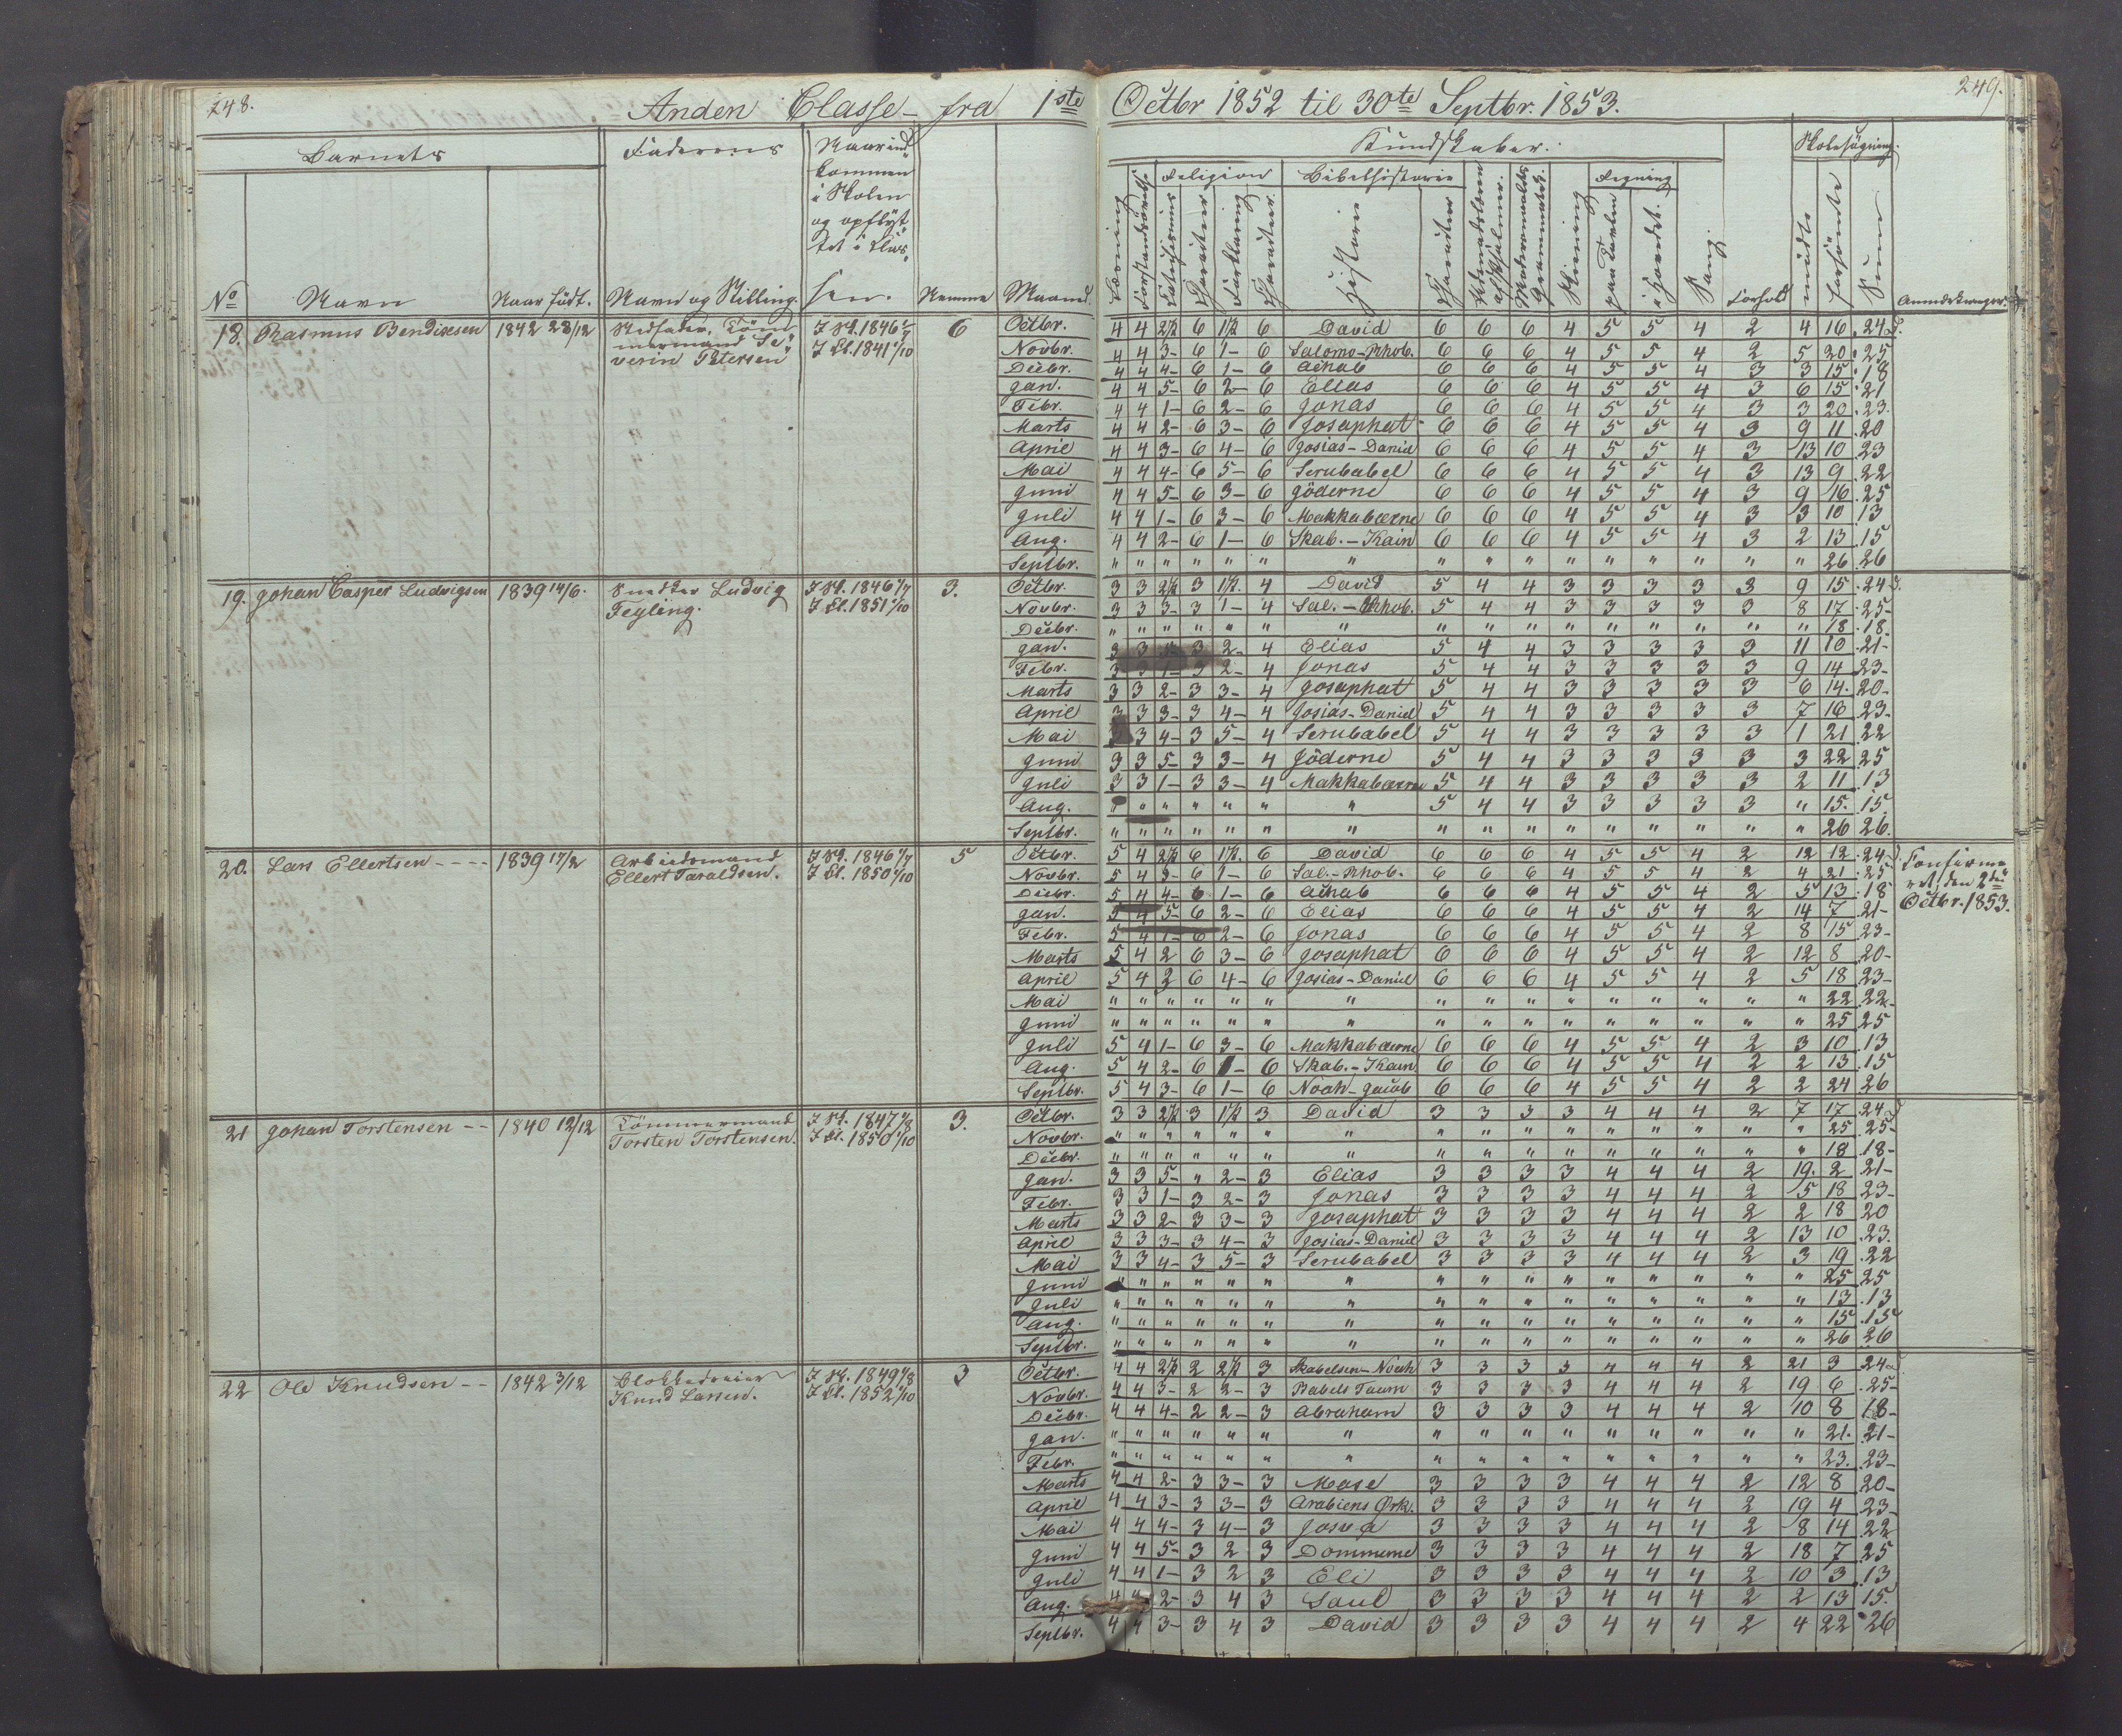 248.
Anden Classe - fra 1ste Octbr 1852 til 30te Septbr. 1853.
249.
Barnets
Faderens
Naar ind
kommen
i Skolen
og opflyt
tet i Clas
sen.
Kundskaber.
Skolesøgning.
Religion
Bibelhistorie
Regning
No
Navn
Naar født.
Navn og Stilling.
Nemme
Maaned.
Læsning
Forklaring
Charakter
Historie
Charakter
Skrivning
paa Tavlen
i Hovedet.
Sang.
Forhold
mødte
forsømte
Sum
Anmærkninger.
18. Rasmus Bendixsen 1842 28/12 Stedfader, Töm
mermand Se
verin Petersen
6
Octbr. 4 4 2½ 6 1½ 6 David 6 6 6 4 5 5 4 2 4 16 .24
Novbr. 4 4 3- 6 1- 6 Salomo-Rhob. 6 6 6 4 5 5 4 2 5 20 .25
Decbr. 4 4 4- 6 1- 6 Achab 6 6 6 4 5 5 4 3 3 15 .18
Jan. 4 4 5- 6 2- 6 Elias 6 6 6 4 5 5 4 3 6 15 .21
Febr. 4 4 1- 6 2- 6 Jonas 6 6 6 4 5 5 4 3 3 20 .23
Marts 4 4 2- 6 3- 6 Josaphat 6 6 6 4 5 5 4 3 9 11 .20
April 4 4 3- 6 4- 6 Josias-Daniel 6 6 6 4 5 5 4 3 13 10 .23
Mai 4 4 4- 6 5- 6 Serubabel 6 6 6 4 5 5 4 3 13 9 .22
Juni 4 4 5- 6 3- 6 Jöderne 6 6 6 4 5 5 4 3 9 16 .25
Juli 4 4 1- 6 3- 6 Makkabæerne 6 6 6 4 5 5 4 3 3 10 .13
Aug. 4 4 2- 6 1- 6 Skab.-Kain 6 6 6 4 5 5 4 3 2 13 .15
Septbr. " " " " " " " " " " " " " " " " 26 26
19. Johan Casper Ludvigsen 1839 14/6. Snedker Ludvig I Sk. 1846 1/7 3.
Feyling. I Cl. 1851 1/10
Octbr. 3 3 2½ 3 1½. 4 David 5 4 4 3 3 3 3 3 9 15 .24
Novbr. 3 3 3- 3 1- 4 Sal.-Rhob. 5 4 4 3 3 3 3 3 8 17 .25-
Decbr. " " " " " " " " " " " " " " " " 18 .18-
Jan. 3 3 3 2- 4 Elias 5 4 4 3 3 3 3 3 11 10 .21-
Febr. 3 3 1- 3 2- 4 Jonas 5 4 4 3 3 3 3 3 9 14 .23-
Marts 3 3 2- 3 3- 4 Josaphat 5 4 4 3 3 3 3 3 6 14. .20-
April 3 3 3- 3 4- 4 Josias-Daniel 5 4 4 3 3 3 3 3 7 16 .23-
Mai 3 3 4- 3 5- 4 Serubabel 5 4 4 3 3 3 3 3 1 21 .22
Juni 3 3 5- 3 3- 4 Jöderne 5 4 4 3 3 3 3 3 3 22 .25
Juli 3 3 1- 3 3- 4 Makkabæerne 5 4 4 3 3 3 3 3 2 11 .13
Aug. " " " " " " " 5 4 4 3 3 3 3 3 " 15. .15
Septbr. " " " " " " " " " " " " " " " " 26 26.
20. Lars Ellertsen ---- 1839 17/2 Arbeidsmand I Sk. 1846 1/7 5
Ellert Taraldsen. I Cl. 1850 1/10
Octbr. 5 4 2½ 6 1½. 6 David 6 6 6 4 5 5 4 2 12 12 .24
Novbr. 5 4 3- 6 1- 6 Sal.-Rhob. 6 6 6 4 5 5 4 2 4 21 .25
Decbr. 5 4 4- 6 1- 6 Achab 6 6 6 4 5 5 4 2 5 13 .18
Jan. 5 4 5- 6 2- 6 Elias 6 6 6 4 5 5 4 2 14 7 .21-
Febr. 5 4 1- 6 2- 6 Jonas 6 6 6 4 5 5 4 2 8 15 .23-
Marts 5 4 2 6 3- 6 Josaphat 6 6 6 4 5 5 4 2 12 8 .20-
April 5 4 2 6 4- 6 Josias-Daniel 6 6 6 4 5 5 4 2 5 18 .23-
Mai " " " " " " " " " " " " " " " " 22 .22-
Juni " " " " " " " " " " " " " " " " 25 .25
Juli 5 4 1- 6 3- 6 Makkabæerne 6 6 6 4 5 5 4 2 3 10 .13
Aug. 5 4 2- 6 1- 6 Skab.-Kain. 6 6 6 4 5 5 4 2 2 13 .15
Septbr. 5 4 3- 6 1- 6 Noah-Jacob 6 6 6 4 5 5 4 2 2 24 26
Confirme
ret, den 2den
Octbr. 1853.
21 Johan Torstensen -- 1840 12/12 Tömmermand I Sk. 1847 1/8 3.
Torsten Torstensen. I Cl. 1850 1/10
Octbr. 3 3 2½ 3 1½ 3 David 3 3 3 3 4 4 4 2 7 17 .24
Novbr. " " " " " " " " " " " " " " " " 25 .25-
Decbr. " " " " " " " " " " " " " " " " 18 .18-
Jan. 3 3 5- " 2- 3 Elias 3 3 3 3 4 4 4 2 19. 2 .21-
Febr. 3 3 1- 3 2- 3 Jonas 3 3 3 3 4 4 4 2 5 18 .23-
Marts 3 3 2- 3 3- 3 Josaphat 3 3 3 3 4 4 4 2 2 18 20
April 3 3 3- 3 4- 3 Josias-Daniel 3 3 3 3 4 4 4 2 13 10 .23.
Mai 3 3 4- 3 5- 3 Serubabel 3 3 3 3 4 4 4 2 3 19 .22
Juni " " " " " " " " " " " " " " " " 25 .25
Juli " " " " " " " " " " " " " " " " 13 .13
Aug. " " " " " " " " " " " " " " " " 15 .15
Septbr. " " " " " " " " " " " " " " " " 26 26
22 Ole Knudsen -- 1842 3/12 I Sk. 1849 1/8 3
Knud Larsen. I Cl. 1852 1/10
Octbr. 4 4 2½ 2 2½ 3 Skabelsen-Noah 3 3 3 3 4 4 4 2 21 3 .24
Novbr. 4 4 3- 2 2- 3 Babels Taarn 3 3 3 3 4 4 4 2 19 6 .25-
Decbr. 4 4 4- 2 2- 3 Abraham 3 3 3 3 4 4 4 2 10 8 .18-
Jan. " " " " " " " " " " " " " " " " 21. .21-
Febr. " " " " " " " " " " " " " " " " 23. .23-
Marts 4 4 2- 3 3- 3 Mose 3 3 3 3 4 4 4 2 12 8 .20-
April 4 4 3- 3 3- 3 Arabiens Ørk. 3 3 3 3 4 4 4 2 19 4 .23-
Mai 4 4 4- 3 4- 3 Josva 3 3 3 3 4 4 4 2 8 14 .22
Juni 4 4 5- 3 2 3 Dommerne 3 3 3 3 4 4 4 2 18 7 .25
Juli 4 4 1- 3 2 3 Eli 3 3 3 3 4 4 4 2 10 3 .13
Aug. 4 4 2- 3 4 3 Saul 3 3 3 3 4 4 4 2 2 13 15.
Septbr. 4 4 3- 3 4 3 David 3 3 3 3 4 4 4 2 4 22 26